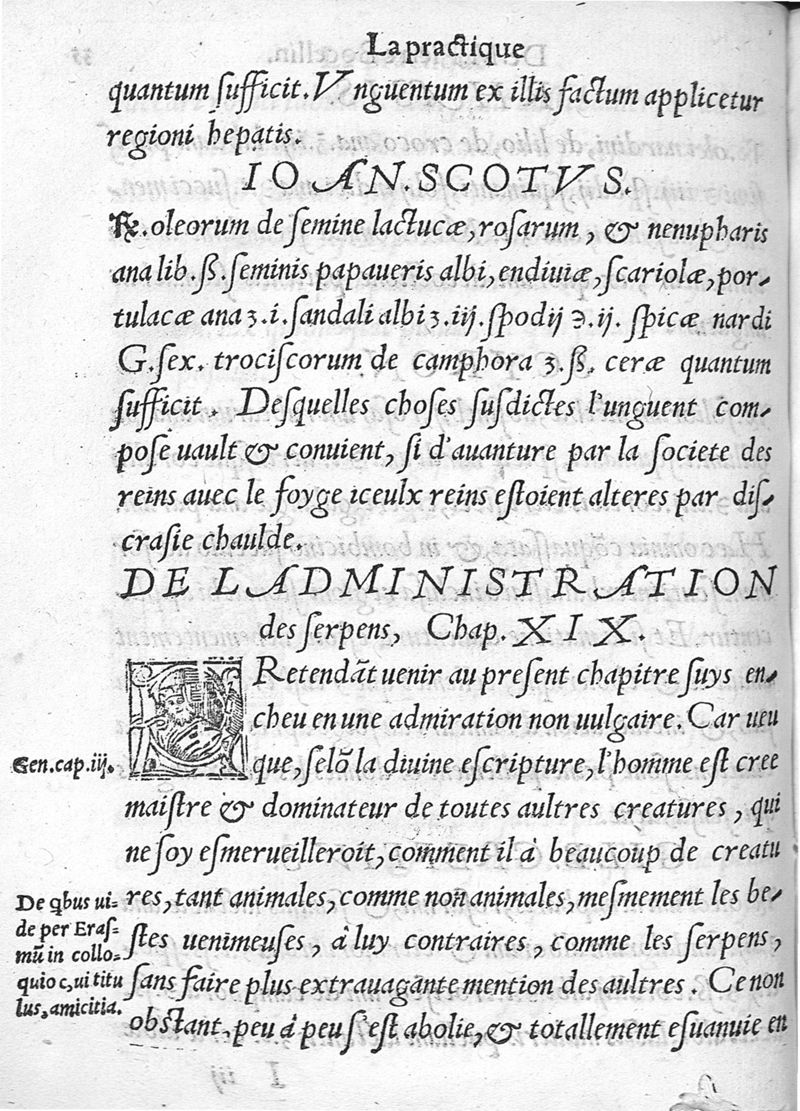 La practique
quantum ſufficit. Vnguentum ex illis factum applicetur
regioni hepatis.
IOAN. SCOTVS.
℞. oleorum de ſemine lactucæ, roſarum, & nenupharis
ana lib. ß. ſeminis papaueris albi, endiuiæ, ſcariolæ, por-
tulacæ ana ʒ. i. ſandali albi ʒ. iij. ſpodij ℈. ij. ſpicæ nardi
G. ſex. trociſcorum de camphora ʒ. ß. ceræ quantum
ſufficit. Deſquelles choſes ſuſdictes l'unguent com-
poſe uault & conuient, ſi d'auanture par la ſociete des
reins auec le foyge iceulx reins eſtoient alteres par diſ-
craſie chaulde.
DE L ADMINISTRATION
des ſerpens, Chap. XIX.
PRetendāt uenir au preſent chapitre ſuys en-
cheu en une admiration non uulgaire. Car ueu
Gen. cap. iij.
que, ſelō la diuine eſcripture, l'homme eſt cree
maiſtre & dominateur de toutes aultres creatures, qui
ne ſoy eſmerueilleroit, comment il à beaucoup de creatu
De qbus ui=
res, tant animales, comme non animales, meſmement les be-
de per Eraſ-
mū in collo=
ſtes uenimeuſes, à luy contraires, comme les ſerpens,
quio c, ui titu
ſans faire plus extrauagante mention des aultres. Ce non
lus, amicitia.
obſtant, peu à peu s'eſt abolie, & totallement eſuanuie en